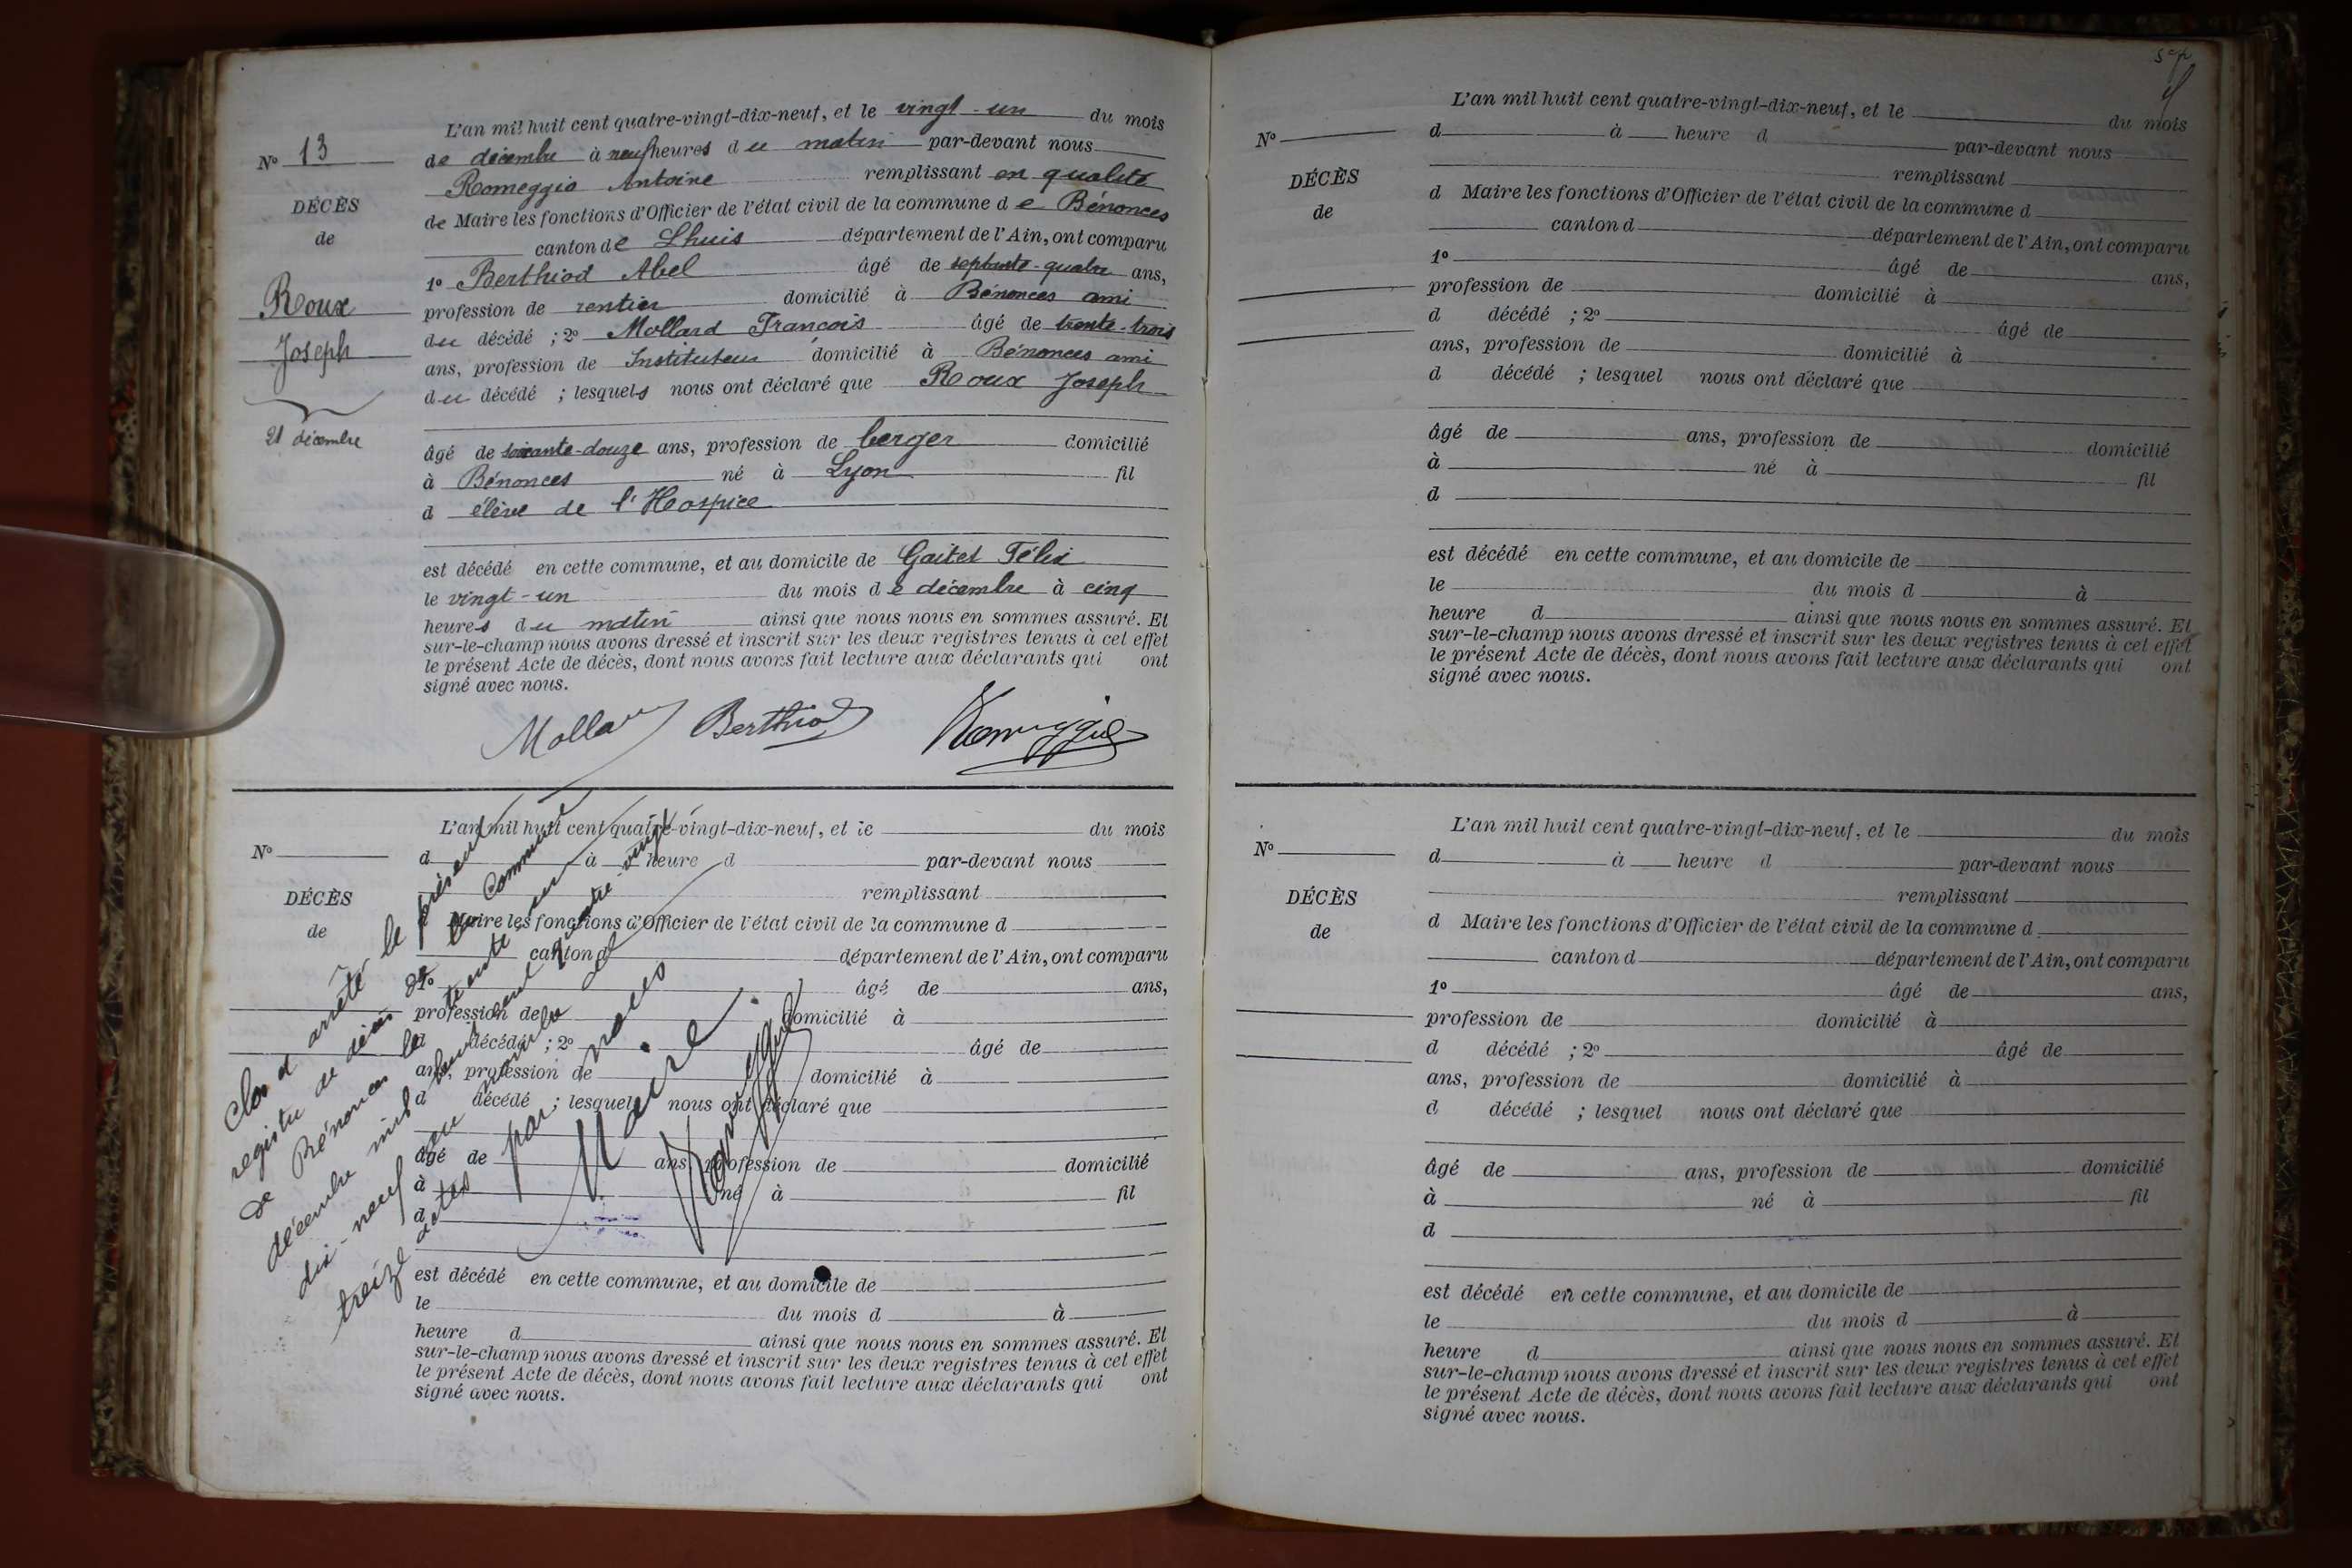 L'an mil huit cent quatre-vingt-dix-neuf, et le vingt-un du mois
de décembre à neuf heures du matin par-devant nous
Romeggio Antoine remplissant en qualité
de Maire les fonctions d'Officier de l'état civil de la commune de Bénonces
canton de Lhuis département de l'Ain, ont comparu
1º Berthiod Abel âgé de septante-quatre ans,
profession de rentier domicilié à Bénonces ami
du décédé ; 2º Mollard François âgé de trente-trois
ans, profession de Instituteur domicilié à Bénonces ami
du décédé ; lesquels nous ont déclaré que Roux Joseph
âgé de soixante-douze ans, profession de berger domicilié
à Bénonces né à Lyon fil
d élève de l'Hospice
est décédé en cette commune, et au domicile de Gaitet Félix
le vingt-un du mois de décembre à cinq
heures du matin ainsi que nous nous en sommes assuré. Et
sur-le-champ nous avons dressé et inscrit sur les deux registres tenus à cet effet
le présent Acte de décès, dont nous avons fait lecture aux déclarants qui ont
signé avec nous.
Nº 13
DÉCÈS
de
Roux
Joseph
21 décembre
Mollard Berthiod Romeggio
L'an mil huit cent quatre-vingt-dix-neuf, et le du mois
d à heure d par-devant nous
remplissant
d Maire les fonctions d'Officier de l'état civil de la commune d
canton d département de l'Ain, ont comparu
1º âgé de ans,
profession de domicilié à
d décédé ; 2º âgé de
ans, profession de domicilié à
d décédé ; lesquel nous ont déclaré que
âgé de ans, profession de domicilié
à né à fil
d
est décédé en cette commune, et au domicile de
le du mois d à
heure d ainsi que nous nous en sommes assuré. Et
sur-le-champ nous avons dressé et inscrit sur les deux registres tenus à cet effet
le présent Acte de décès, dont nous avons fait lecture aux déclarants qui ont
signé avec nous.
Nº
DÉCÈS
de
Clos et arrêté le présent
registre de décès de la Commune
de Bénonces le trente-un
décembre mil huit cent quatre-vingt
dix-neuf au nombre de
treize actes par nous
Maire.
Romeggio
L'an mil huit cent quatre-vingt-dix-neuf, et le du mois
d à heure d par-devant nous
remplissant
d Maire les fonctions d'Officier de l'état civil de la commune d
canton d département de l'Ain, ont comparu
1º âgé de ans,
profession de domicilié à
d décédé ; 2º âgé de
ans, profession de domicilié à
d décédé ; lesquel nous ont déclaré que
âgé de ans, profession de domicilié
à né à fil
d
est décédé en cette commune, et au domicile de
le du mois d à
heure d ainsi que nous nous en sommes assuré. Et
sur-le-champ nous avons dressé et inscrit sur les deux registres tenus à cet effet
le présent Acte de décès, dont nous avons fait lecture aux déclarants qui ont
signé avec nous.
Nº
DÉCÈS
de
L'an mil huit cent quatre-vingt-dix-neuf, et le du mois
d à heure d par-devant nous
remplissant
d Maire les fonctions d'Officier de l'état civil de la commune d
canton d département de l'Ain, ont comparu
1º âgé de ans,
profession de domicilié à
d décédé ; 2º âgé de
ans, profession de domicilié à
d décédé ; lesquel nous ont déclaré que
âgé de ans, profession de domicilié
à né à fil
d
est décédé en cette commune, et au domicile de
le du mois d à
heure d ainsi que nous nous en sommes assuré. Et
sur-le-champ nous avons dressé et inscrit sur les deux registres tenus à cet effet
le présent Acte de décès, dont nous avons fait lecture aux déclarants qui ont
signé avec nous.
Nº
DÉCÈS
de